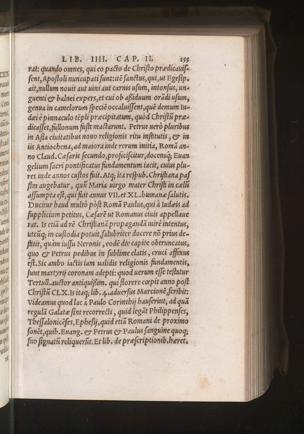 LIB. IIII. CAP. II. 155
rat: quando omnes, qui eo pacto de Christo prædicauis-
sent, Apostoli nuncupati sunt: itē sanctus, qui, ut Egesip.
ait, nullum nouit aut uini aut carnis usum, intonsus, un-
guenti & balnei expers, et cui ob assiduum orādi usum,
genua in camelorum speciē occaluissent, quē demum Iu-
dæi è pinnaculo tēpli præcipitatum, quod Christū præ-
dicasset, fullonum fuste mactarunt. Petrus uerò pluribus
in Asia ciuitatibus nouo religionis ritu institutis, & in
iis Antiochena, ad maiora inde rerum initia, Romā an-
no Claud. Cæsaris secundo, proficiscitur, docensq́; Euan
gelium sacri pontificatus fundamentum iacit, cuius plu-
res inde annos custos fuit. Atq; ita respub. Christiana pas
sim augebatur, quū Maria uirgo mater Christi in cœlū
assumpta est, qui fuit annus VII. et XL. humanæ salutis.
Ducitur haud multò pòst Romā Paulus, qui à Iudæis ad
supplicium petitus, Cæsarē ut Romanus ciuis appellaue
rat. Is etiā ad rē Christianā propagandā mirè intentus,
utcūq; in custodia potuit, salubriter docere nō prius de-
stitit, quàm iussu Neronis, eodē die capite obtruncatus,
quo & Petrus pedibus in sublime elatis, cruci affixus
est. Sic ambo iactis iam ualidis religionis fundamentis,
sunt martyrij coronam adepti: quod uerum esse testatur
Tertull. auctor antiquissim. qui florere cœpit anno post
Christū CLX. Is itaq; lib. 4. aduersus Marcionē, scribit:
Videamus quod lac à Paulo Corinthij hauserint, ad quā
regulā Galatæ sint recorrecti, quid legāt Philippenses,
Thessalonicēses, Ephesij, quid etiā Romani de proximo
sonēt, quib. Euang. & Petrus & Paulus sanguine quoq;
suo signatū reliquerūt. Et lib. de præscriptionib. hæret.